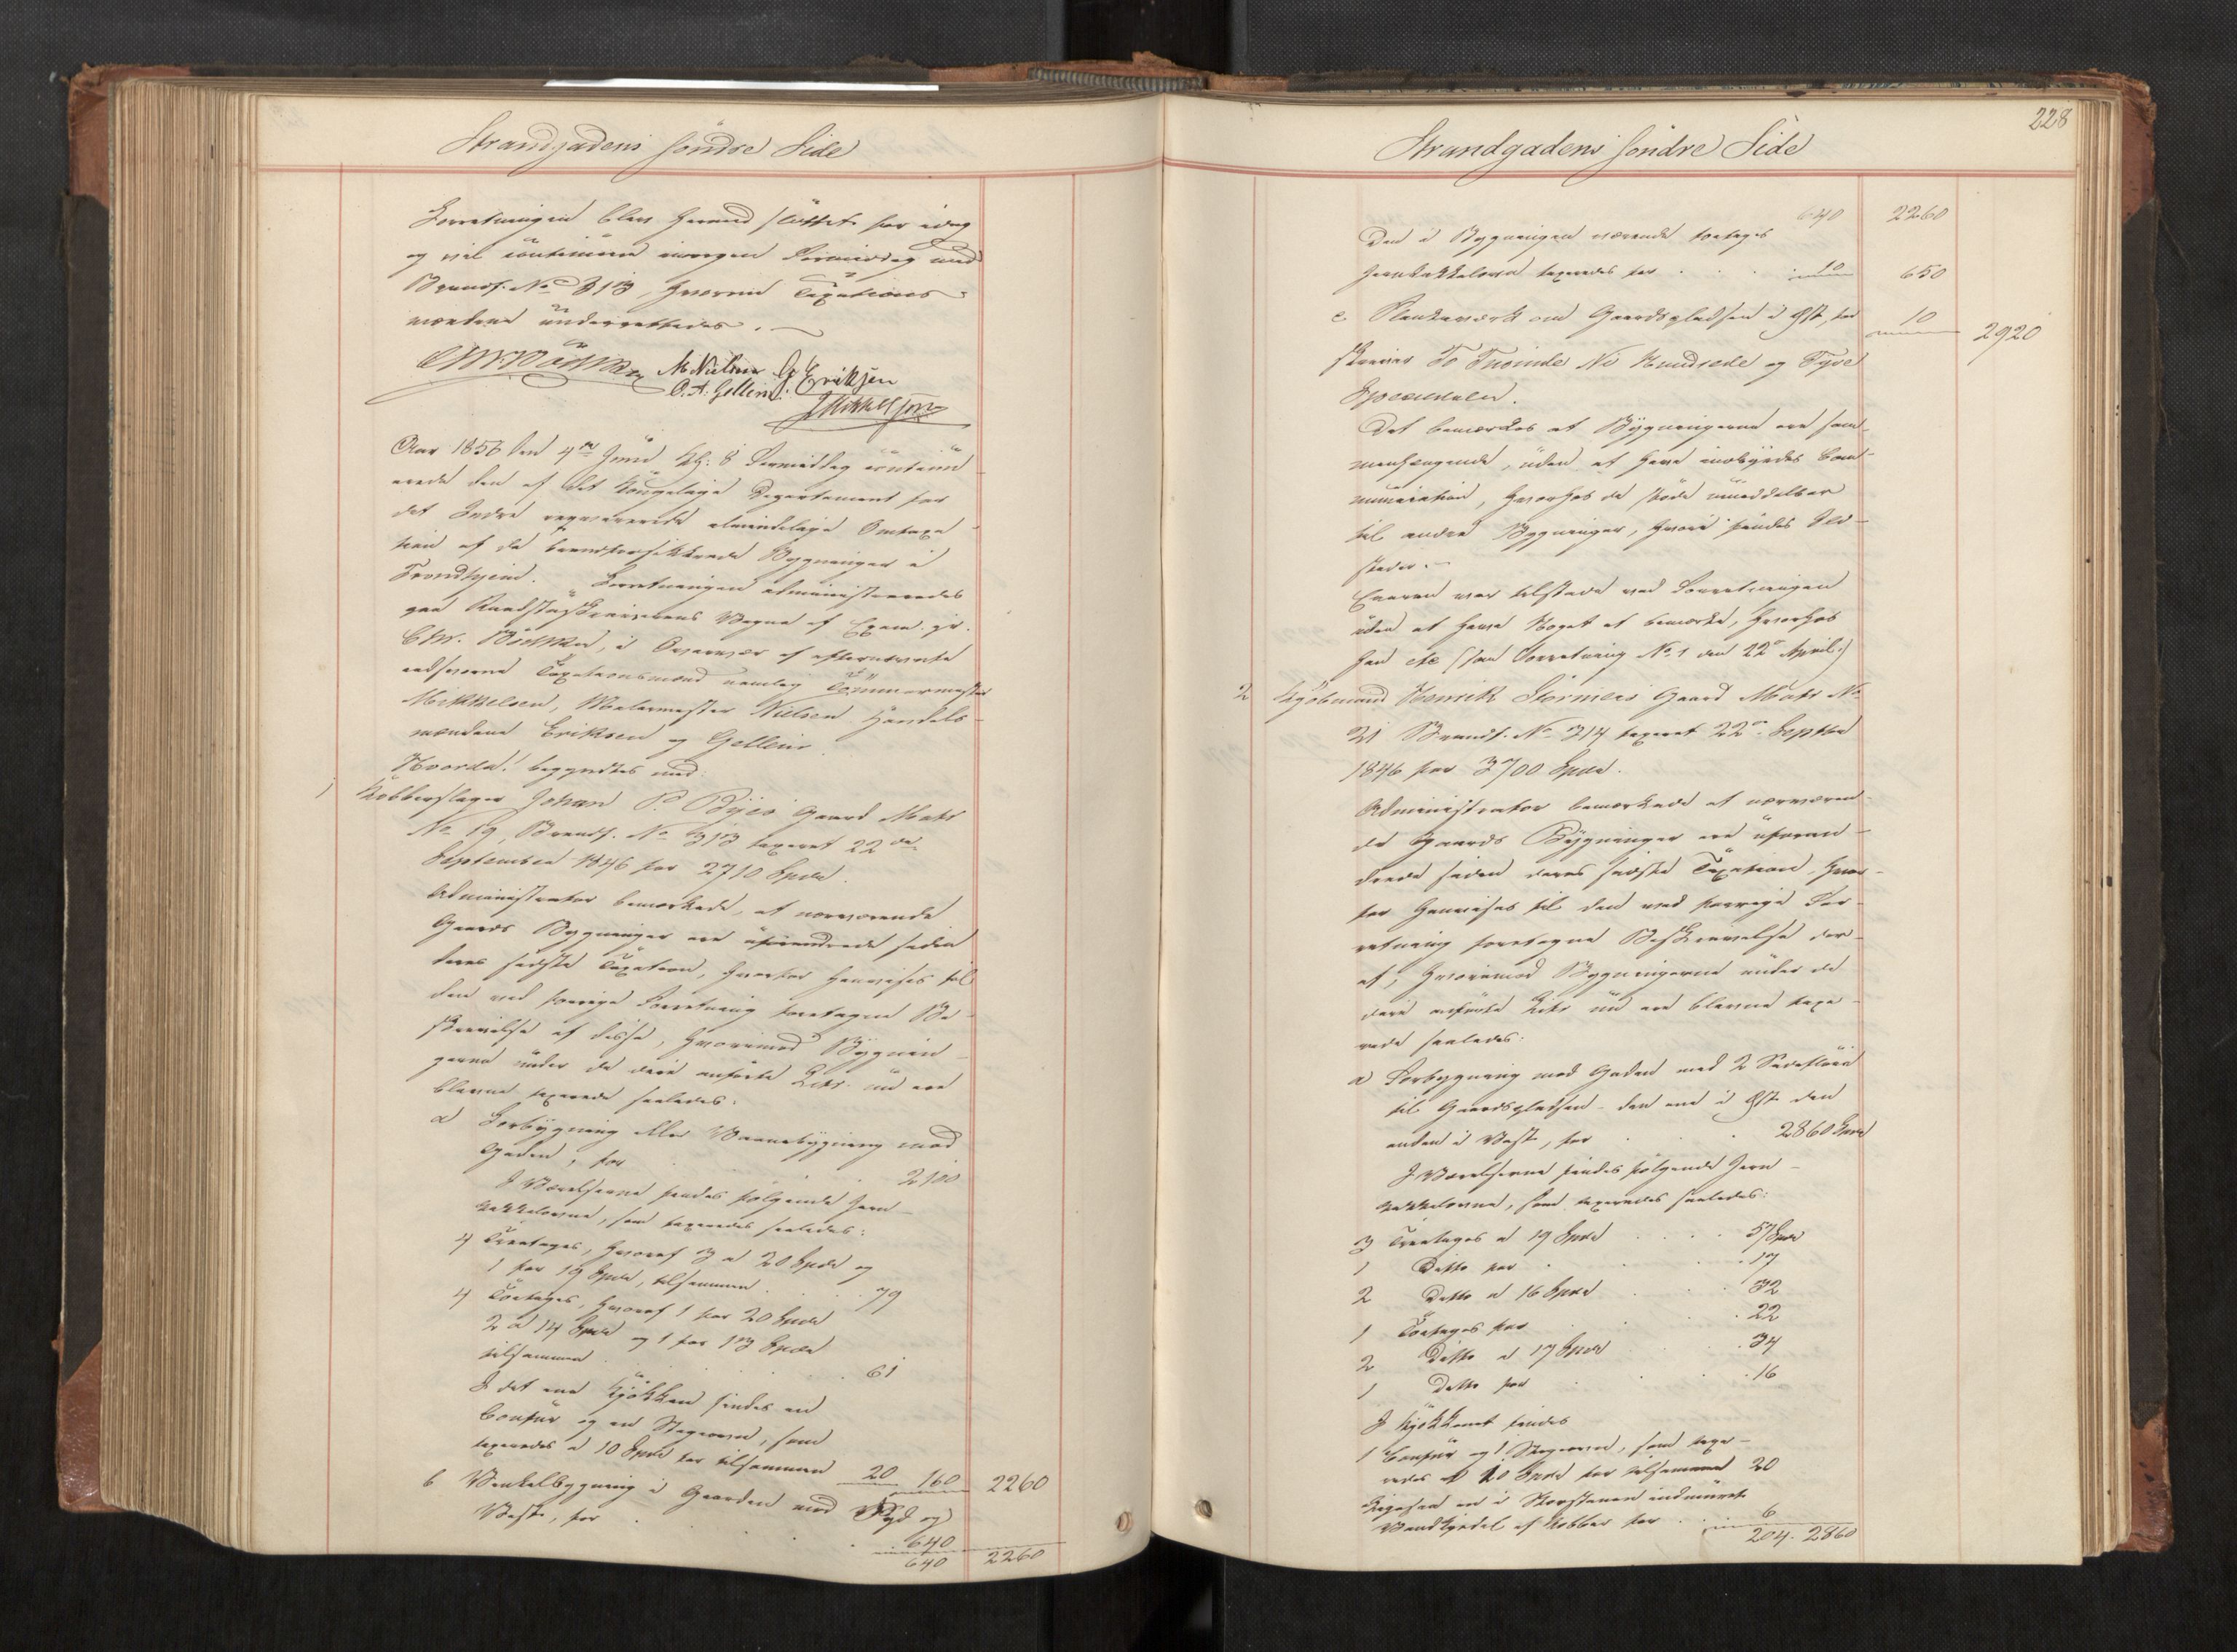 Strandgadens söndre Side
Forretningen blev herved sluttet for idag
og vil continuere imorgen Formiddag med
Brandf. No 313, hvorom Taxations-
mændene underrettedes.
M Nielsen G Eriksen
O. A. Gellein.
J Mikkelsen
Aar 1856 den 4de Juni Kl: 8 Formiddag continu-
erede den af det Kongelige Departement for
det Indre requirerede almindelige Omtaxa-
tion af de brandforsikkrede Bygninger i
Trondhjem. Forretningen administreredes
paa Raadstueskriverens Vegne af Exam. jur.
Chr. Bödtker, i Overvær af efternævnte
edsvorne Taxationsmænd nemlig Tömmermester
Mikkelsen, Malermester Nielsen Handels-
mændene Eriksen og Gellein.
Hvorda! begyndtes med:
1 Kobberslager Johan P. Byes Gaard Matr
No 19, Brandf. No 313 taxeret 22de
September 1846 for 2710 Spdlr.
Administrator bemærkede, at nærværende
Gaards Bygninger ere uforandrede siden
deres sidste Taxation, hvorfor henvises til
den ved forrige Forretning foretagne Be-
skrivelse af disse, hvorimod Bygnin-
gerne under de deri anförte Litr. nu ere
blevne taxerede saaledes:
a Forbygning eller Vaanebygning mod
Gaden, for . . . 2100
I Værelserne findes fölgende Jern-
kakkelovne, som taxeredes saaledes:
4 Treetages, hvoraf 3 a 20 Spdlr og
1 for 19 Spdlr, tilsammen . . 79
4 Toetages, hvoraf 1 for 20 Spdlr
2 a 14 Spdlr og 1 for 13 Spdlr
tilsammen . . . . 61
I det ene Kjökken findes en
Comfur og en Stegeovn, som
taxeredes a 10 Spdlr for tilsammen 20 160 2260
b Vinkelbygning i Gaarden mod Syd og
Vest, for . . . 640
640 2260
228
Strandgadens söndre Side
640 2260
Den i Bygningen værende toetages
Jernkakkelovn taxeredes for . . . 10 650
c Plankeværk om Gaardspladsen i Öst, for 10 2920
skriver To Tusinde Ni Hundrede og Tyve
Speciedaler.
Det bemærkes at Bygningerne ere sam-
menhængende, uden at have indbyrdes Com-
munication, hvorhos de stöde umiddelbar
til andre Bygninger, hvori findes Ild-
steder.-
Eieren var tilstede ved Forretningen
uden at have Noget at bemærke, hvorhos
han etc (som Forretning No 1 den 22de April.)
2 Kjöbmand Henrik Störmers Gaard Matr No
21 Brandf. No 314 taxeret 22de Septbr
1846 for 3700 Spdlr.
Administrator bemærkede at nærværen-
de Gaards Bygninger ere uforan-
drede siden deres sidste Taxation, hvor-
for henvises til den ved forrige For-
retning foretagne Beskrivelse der-
af, hvorimod Bygningerne under de
deri anförte Litr nu ere blevne taxe-
rede saaledes:
a Forbygning mod Gaden med 2 Sideflöie
til Gaardspladsen - den ene i Öst den
anden i Vest, for . . . 2860 Spdlr
I Værelserne findes fölgende Jern-
kakkelovne, som taxeredes saaledes:
3 Treetages a 19 Spdlr . . . 57 Spdlr
1 Ditto for . . . 17
2 Ditto a 16 Spdlr . . . 32
1 Toetages for . . . 22
2 Ditto a 17 Spdlr . . . 34
1 Ditto for . . . 16
I Kjökkenet findes
1 Comfur og 1 Stegeovn, som taxe-
redes a 10 Spdlr for tilsammen 20
Ligesaa en i Skorstenen indmuret
Vandkjedel af Kobber for . . 6
204. 2860